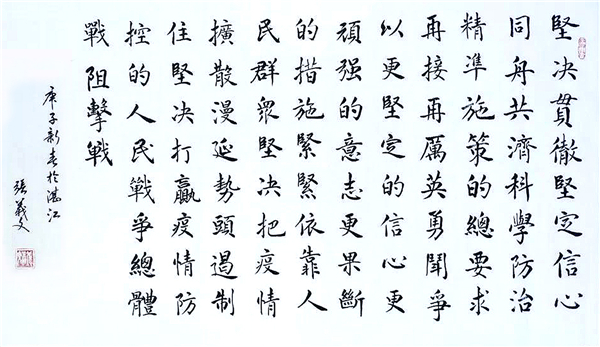 堅决貫徹堅定信心
同舟共濟科學防治
精準施策的總要求
再接再厲英勇聞爭
以更堅定的信心更
頑强的意志更果斷
的措施緊緊依靠人
民群衆堅决把疫情
擴散漫延勢頭遏制
住堅决打贏疫情防
控的人民戰爭總體
戰阻擊戰
庚子新春於湛江
張義文